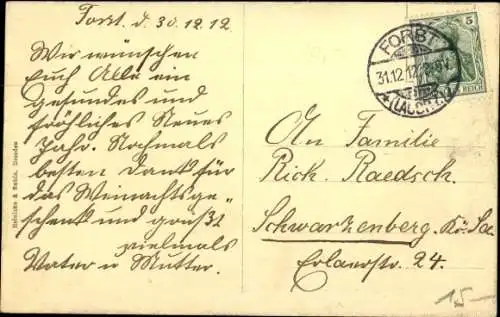 Forst d. 30.12.12
Wir wünschen
Euch Alle ein
gesundes und
fröhliches Neues
Jahr. Nochmals
besten Dank für
das Weinachtsge-
schenk und grüßt
vielmals
Vater u Mutter.
FORST
31.12.12. 8-9V.
* (LAUSITZ)
5
REICH
An Familie
Rich. Raedsch.
Schwarzenberg. Kö. Sa.
Erlanstr. 24.
15.-
Reinicke & Rubin, Dresden